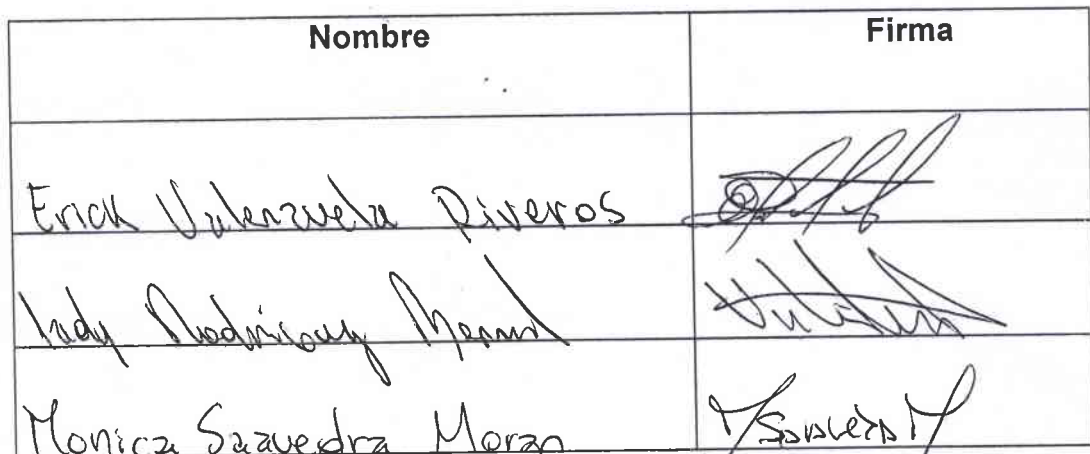 Nombre Firma
Erick Valenzuela Riveros
Lady Rodriguez
Monica Saavedra Moran MSaavedraM